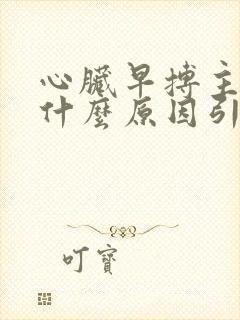 心臟早搏主
什麼原因引
叮寶